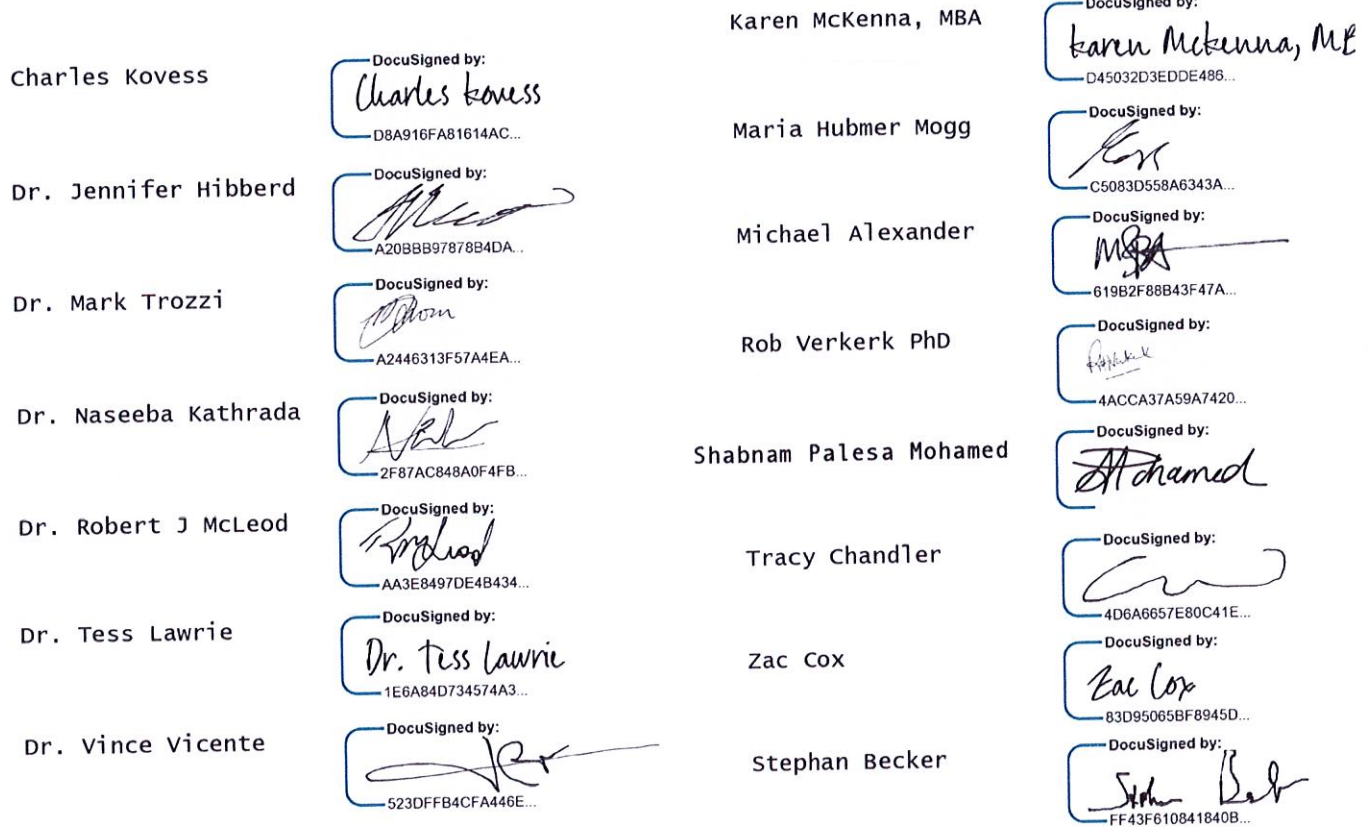 Charles Kovess
DocuSigned by:
Charles Kovess
D8A916FA81614AC...
Dr. Jennifer Hibberd
DocuSigned by:
A20BBB97878B4DA...
Dr. Mark Trozzi
DocuSigned by:
A2446313F57A4EA...
Dr. Naseeba Kathrada
DocuSigned by:
2F87AC848A0F4FB...
Dr. Robert J McLeod
DocuSigned by:
AA3E8497DE4B434...
Dr. Tess Lawrie
DocuSigned by:
Dr. Tess Lawrie
1E6A84D734574A3...
Dr. Vince Vicente
DocuSigned by:
523DFFB4CFA446E...
Karen McKenna, MBA
DocuSigned by:
Karen McKenna, MB
D45032D3EDDE486...
Maria Hubmer Mogg
DocuSigned by:
C5083D558A6343A...
Michael Alexander
DocuSigned by:
619B2F88B43F47A...
Rob Verkerk PhD
DocuSigned by:
4ACCA37A59A7420...
Shabnam Palesa Mohamed
DocuSigned by:
Mohamed
Tracy Chandler
DocuSigned by:
4D6A6657E80C41E...
Zac Cox
DocuSigned by:
Zac Cox
83D95065BF8945D...
Stephan Becker
DocuSigned by:
FF43F610841840B...